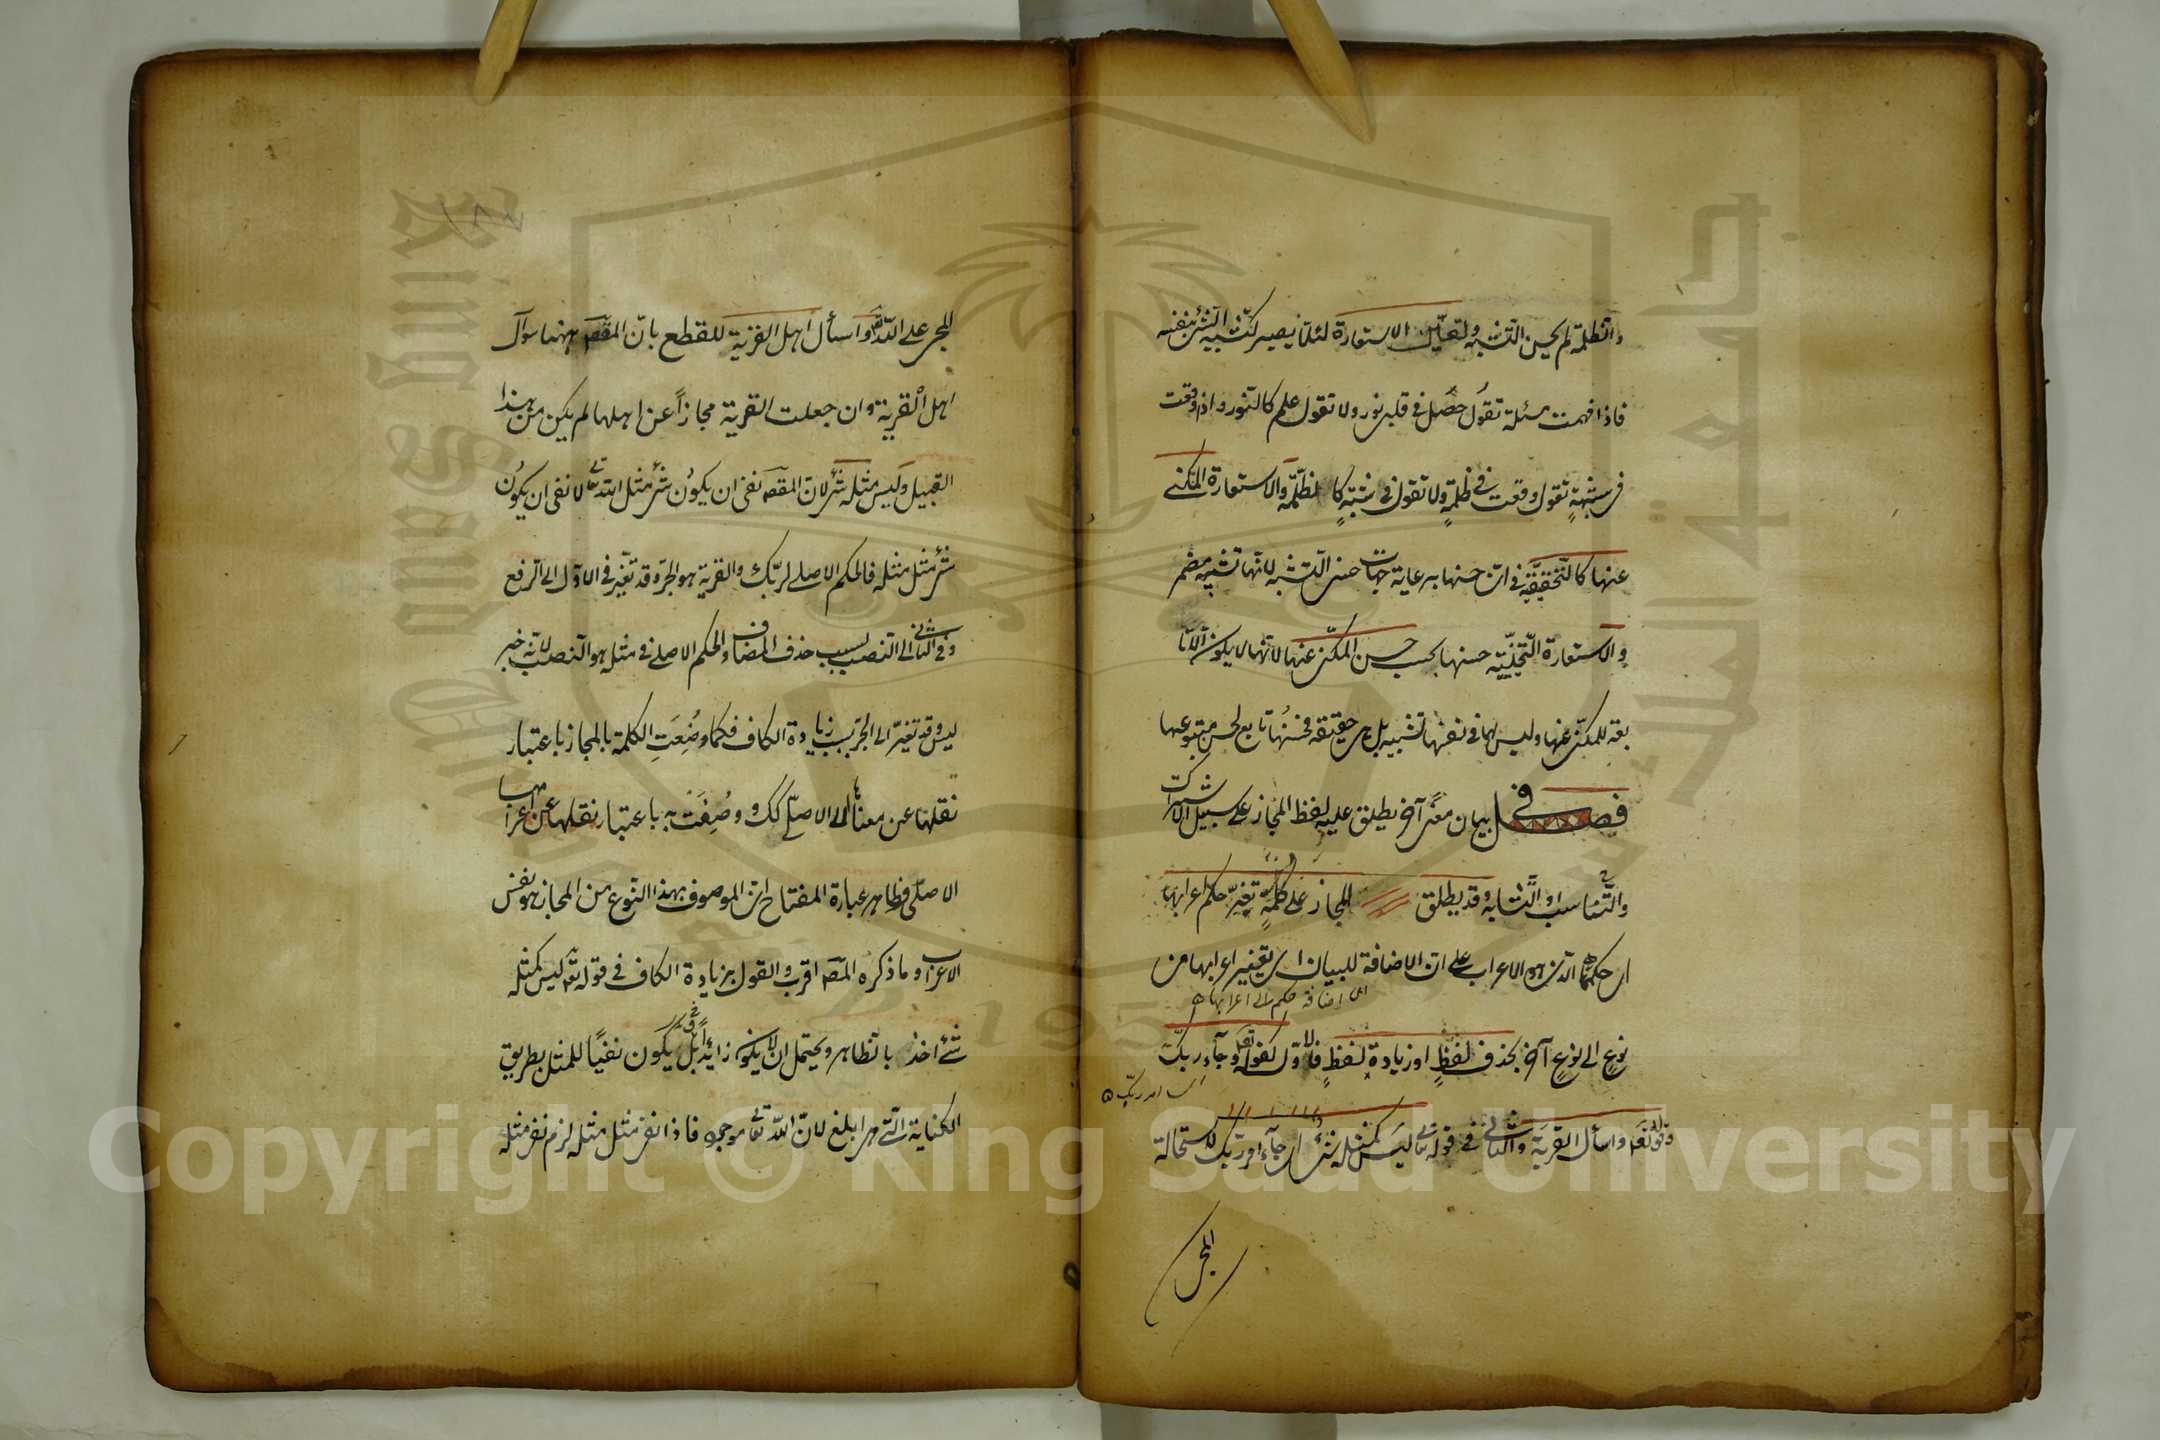 والظلمة لم يحسن التشبيه وتعين الاستعارة لئلا يصير كتشبيه الشئ بنفسه
فاذا فهمت مسئلة تقول حصل في قلبي نور ولا تقول علم كالنور واذا وقعت
في شبهة تقول وقعت في ظلمة ولا تقول في شبهة كالظلمة والاستعارة المكني
عنها كالتحقيقية في ان حسنها برعاية جهات حسن التشبيه لانها تشبيه مضمر
والاستعارة التخييلية حسنها بحسب حسن المكني عنها لانها لا يكون الا تا
بعة للمكني عنها وليس لها في نفسها تشبيه بل هي حقيقة فحسنها تابع لحسن متبوعها
فصل في بيان معنى آخر يطلق عليه لفظ المجاز على سبيل الاشتراك
والتناسب او التشابه وقد يطلق المجاز على كلمة تغير حكم اعرابها
اي حكمها الذي هو الاعراب على ان الاضافة للبيان اي تغير اعرابها من
اي اضافة حكم الى اعرابها
نوع الى نوع آخر بحذف لفظ او زيادة لفظ فالاول كقوله تع وجاء ربك
اي امر ربك
وقوله تع واسأل القرية والثاني في قوله تعالى ليس كمثله شئ اي جاء امر ربك لاستحالة
المجئ
للمجئ على الله تع واسأل اهل القرية للقطع بان المقص ههنا سؤال
اهل القرية وان جعلت القرية مجازاً عن اهلها لم يكن من هذا
القبيل وليس مثله شئ لان المقص نفي ان يكون شئ مثل الله تعالى لا نفي ان يكون
شئ مثل مثله فالحكم الاصلي لربك والقرية هو الجر وقد تغير في الاول الى الرفع
وفي الثاني الى النصب بسبب حذف المضاف والحكم الاصلي في مثله هو النصب لانه خبر
ليس وقد تغير الى الجر بسبب زيادة الكاف فكما وضعت الكلمة بالمجاز باعتبار
نقلها عن معناها الاصلي كك وصفت به باعتبار نقلها عن اعرابها
الاصلي وظاهر عبارة المفتاح ان الموصوف بهذا النوع من المجاز هو نفس
الاعراب وما ذكره المص اقرب والقول بزيادة الكاف في قوله تع ليس كمثله
شئ اخذ بالظاهر ويحتمل ان لا يكون زائداً بل يكون نفيًا للمثل بطريق
الكناية التي هي ابلغ لان الله تعالى موجود فاذا نفي مثل مثله لزم نفي مثله
Copyright © King Saud University